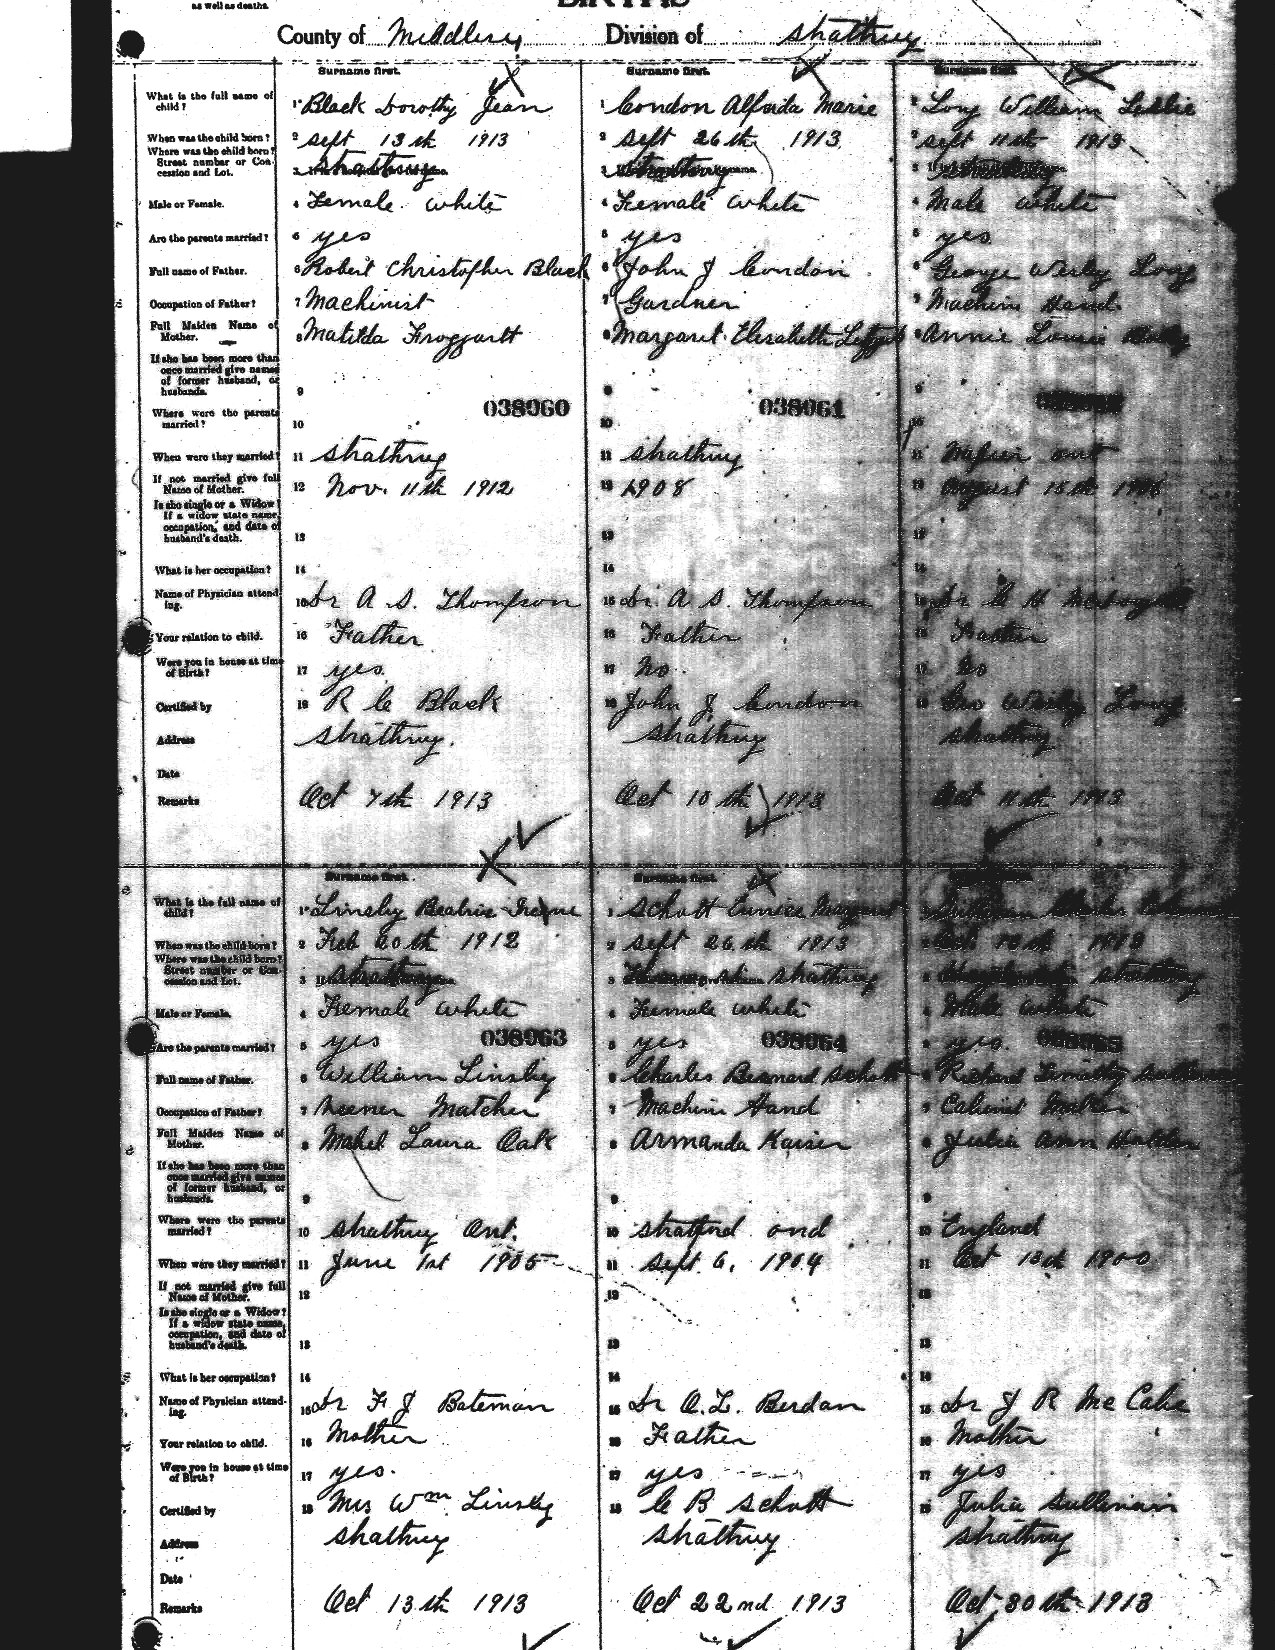 as well as deaths.
BIRTHS
County of Middlesex Division of Strathroy
Surname first. Surname first. Surname first.
What is the full name of child? 1 Black Dorothy Jean 1 Condon Alfreda Marie 1 Long William Leslie
When was the child born? 2 Sept 13th 1913 2 Sept 26th 1913 2 Sept 11th 1913
Where was the child born? Street number or Concession and Lot. 3 Strathroy 3 Strathroy 3 Strathroy
Male or Female. 4 Female White 4 Female White 4 Male White
Are the parents married? 5 yes 5 yes 5 yes
Full name of Father. 6 Robert Christopher Black 6 John J Condon 6 George Wesley Long
Occupation of Father? 7 Machinist 7 Gardner 7 Machine Hand
Full Maiden Name of Mother. 8 Matilda Froggartt 8 Margaret Elizabeth 8 Annie Louise
If she has been more than once married give names of former husband, or husbands. 9 9 9
038960 038961
Where were the parents married? 10 10 10
When were they married? 11 Strathroy 11 Strathroy 11 Ont
If not married give full Name of Mother. 12 Nov. 11th 1912 12 1908 12 August 15th
Is she single or a Widow? If a widow state name, occupation, and date of husband's death. 13 13 13
What is her occupation? 14 14 14
Name of Physician attending. 15 Dr A. S. Thompson 15 Dr. A S. Thompson 15 Dr
Your relation to child. 16 Father 16 Father 16 Father
Were you in house at time of Birth? 17 yes. 17 No. 17 No
Certified by 18 R C Black 18 John J Condon 18 Geo Wesley Long
Address Strathroy. Strathroy Strathroy
Date
Remarks Oct 7th 1913 Oct 10th 1913 Oct 11th 1913
Surname first. Surname first.
What is the full name of child? 1 Linsley Beatrice Irene 1 Schott Eunice Margaret 1
When was the child born? 2 Feb 20th 1912 2 Sept 26th 1913 2 Oct 10th 1913
Where was the child born? Street number or Concession and Lot. 3 Strathroy 3 Strathroy 3 Strathroy
Male or Female. 4 Female White 4 Female White 4 Male White
038963 038964 038965
Are the parents married? 5 yes 5 yes 5 yes.
Full name of Father. 6 William Linsley 6 Charles Bernard Schott 6 Richard Timothy
Occupation of Father? 7 Veener Matcher 7 Machine Hand 7 Cabinet Maker
Full Maiden Name of Mother. 8 Mabel Laura Oak 8 Armanda Kaiser 8 Julia Ann
If she has been more than once married give names of former husband, or husbands. 9 9 9
Where were the parents married? 10 Strathroy Ont. 10 Stratford Ont 10 England
When were they married? 11 June 1st 1905 11 Sept 6, 1904 11 Oct 13th 1900
If not married give full Name of Mother. 12 12 12
Is she single or a Widow? If a widow state name, occupation, and date of husband's death. 13 13 13
What is her occupation? 14 14 14
Name of Physician attending. 15 Dr F J Bateman 15 Dr A. L. Berdan 15 Dr J R Mc Cabe
Your relation to child. 16 Mother 16 Father 16 Mother
Were you in house at time of Birth? 17 yes. 17 yes 17 yes
Certified by 18 Mrs Wm Linsley 18 C B Schott 18 Julia Sullivan
Address Strathroy Strathroy Strathroy
Date
Remarks Oct 13th 1913 Oct 22nd 1913 Oct 30th 1913